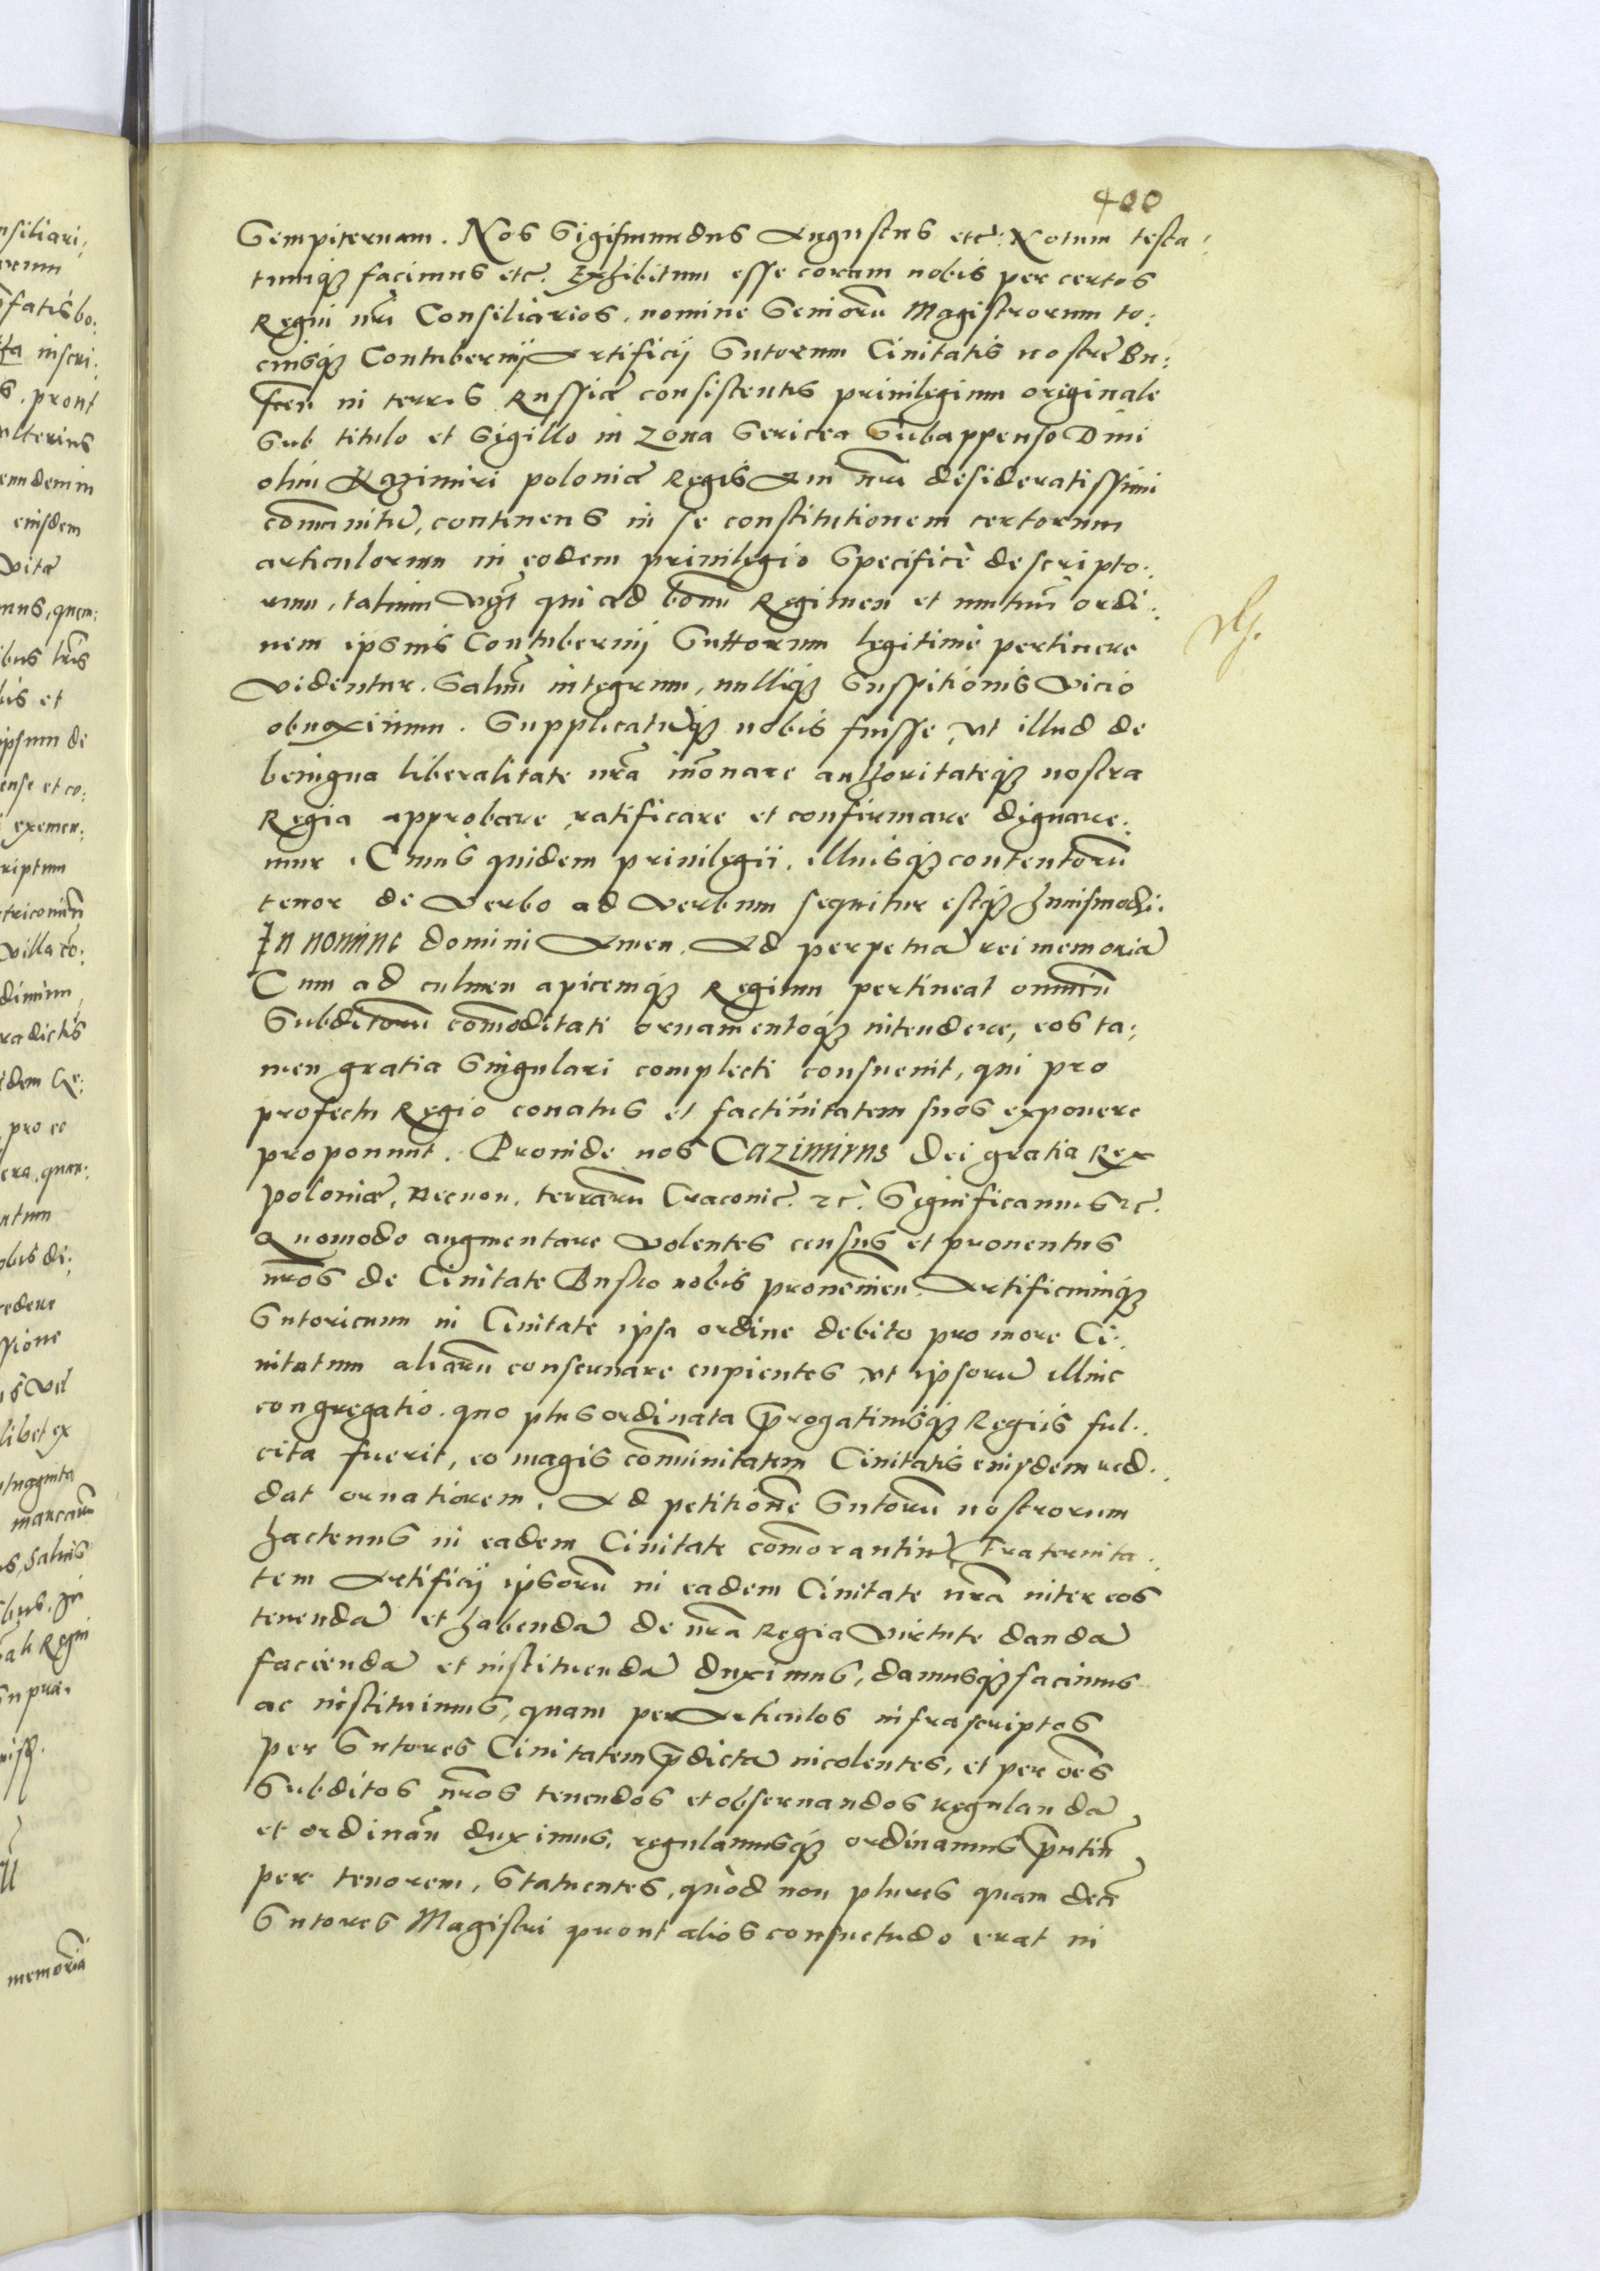 400
Sempiternam. Nos Sigismundus Augustus etc: Notum testa:
tumq3 facimus etc. Exhibitum esse coram nobis per certos
Regni nr̃i Consiliarios, nomine Seniorũ Magistrorum to:
ciusq3 Contubernij Artificij Sutorum Ciuitatis nostrę Bu:
scen in terris Russiæ consistentis priuilegium originale
Sub titulo et Sigillo in Zona Sericea Subappenso Diui
olim Kazimiri poloniæ Regis Aui nr̃i desideratissimi
com̃unitũ, continens in se constitutionem certorum
articulorum in eodem priuilegio Specificè descripto:
rum, talium qui ad bonũ Regimen et mutuũ ordi:
nem ipsius Contubernij Suttorum legitimè pertinere
Videntur. Saluũ integrum, nulliq3 Suspitionis Vicio
obnoxium. Supplicatũq3 nobis fuisse, vt illud de
benigna liberalitate nr̃a in̄ouare authoritateq3 nostra
Regia approbare, ratificare et confirmare dignare:
mur. Cuius quidem priuilegii, illiusq3 contentorũ
tenor de Verbo ad Verbum sequitur estq3 huiusmodi.
In nomine domini Amen. Ad perpetuã rei memoriã
Cum ad culmen apicemq3 Regium pertineat omniũ
Subditorũ com̃oditati ornamentoq3 intendere, eos ta:
men gratia Singulari complecti consueuit, qui pro
profectu Regio conatus et factiuitatem suos exponere
proponunt. Proinde nos Cazimirus Dei gratia Rex
poloniæ, Necnon, terrarũ Craconiẽ. etc. Significamus etc.
Quomodo augmentare Volentes census et prouentus
nr̃os de Ciuitate Busko nobis prouenien̄. Artificiumq3
Sutoricum in Ciuitate ipsa ordine debito pro more Ci:
uitatum aliarũ conseruare cupientes, vt ipsorũ illinc
congregatio, quo plus ordinata p̃rogatiuisq3 Regiis ful:
cita fuerit, eo magis com̃unitatem Ciuitatis eiusdem red:
dat ornatiorem. Ad petitionẽ Sutorũ nostrorum
hactenus in eadem Ciuitate com̃orantiũ, Fraternita:
tem Artificij ipsorũ in eadem Ciuitate nr̃a inter eos
tenendã et habendã de nr̃a Regia Virtute dandã
faciendã et instituendã duximus, damusq3 facimus
ac instituimus, quam per Articulos infrascriptos
per Sutores Ciuitatem p̃dictã incolentes, et per oẽs
Subditos nr̃os tenendos et obseruandos regulandã
et ordinañ duximus, regulamusq3 ordinamus p̃ntiũ
per tenorem, Statuentes, quòd non plures quam decẽ
Sutores Magistri prout alios consuetudo erat in